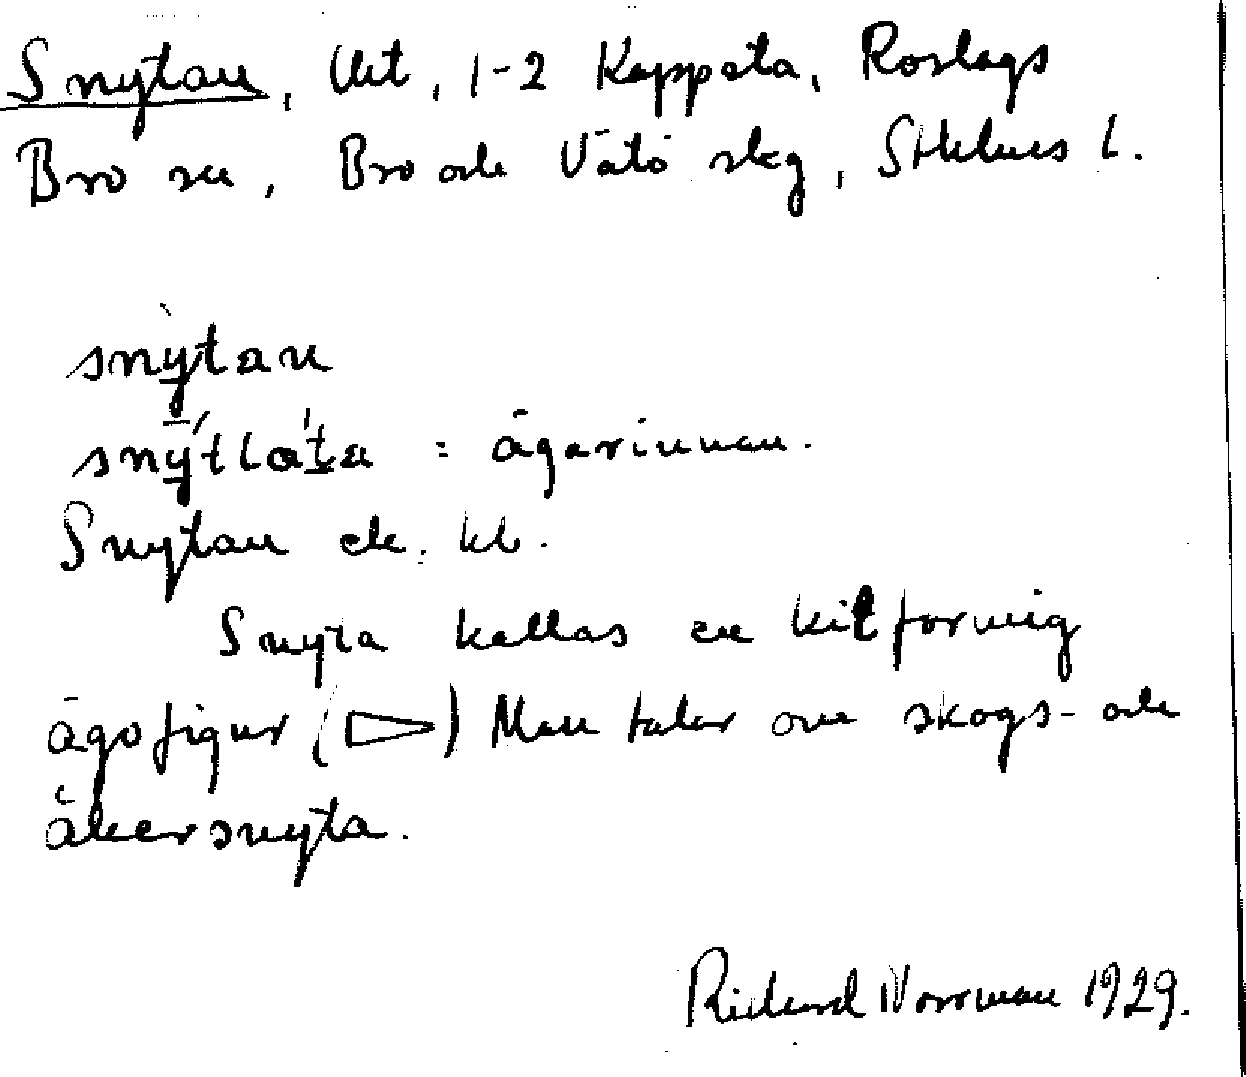 Snytan, Utt, 1-2 Kappsta, Roslags
Bro sn, Bro och Vätö skg, Sthlms l.
snỳtan
snýtlåta = ägarinnan.
Snytan ek. kb.
Snyta kallas en kilformig
ägofigur (▷) Man talar om skogs- och
åkersnyta.
Richard Norrman 1929.